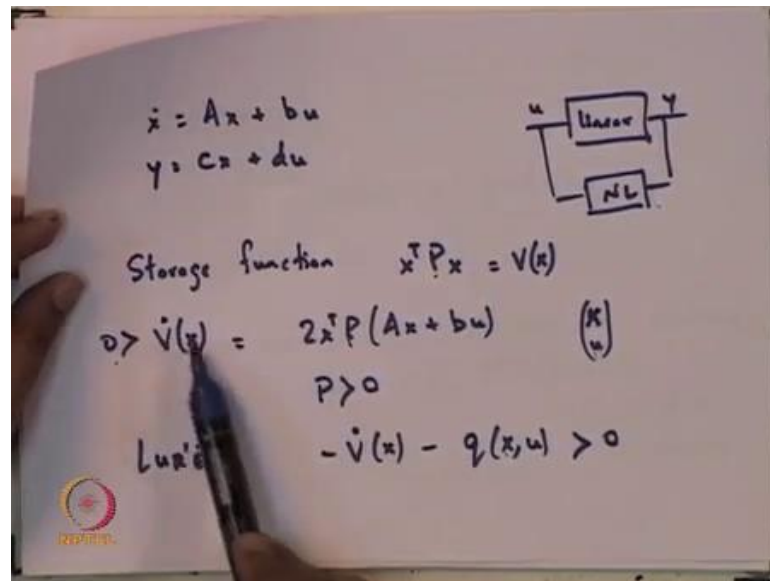 ẋ = Ax + bu
y = Cx + du
u Linear y
NL
Storage function xᵀPx = V(x)
0 > V̇(x) = 2xᵀP(Ax + bu) (x u)
P > 0
- V̇(x) - q(x,u) > 0
NPTEL